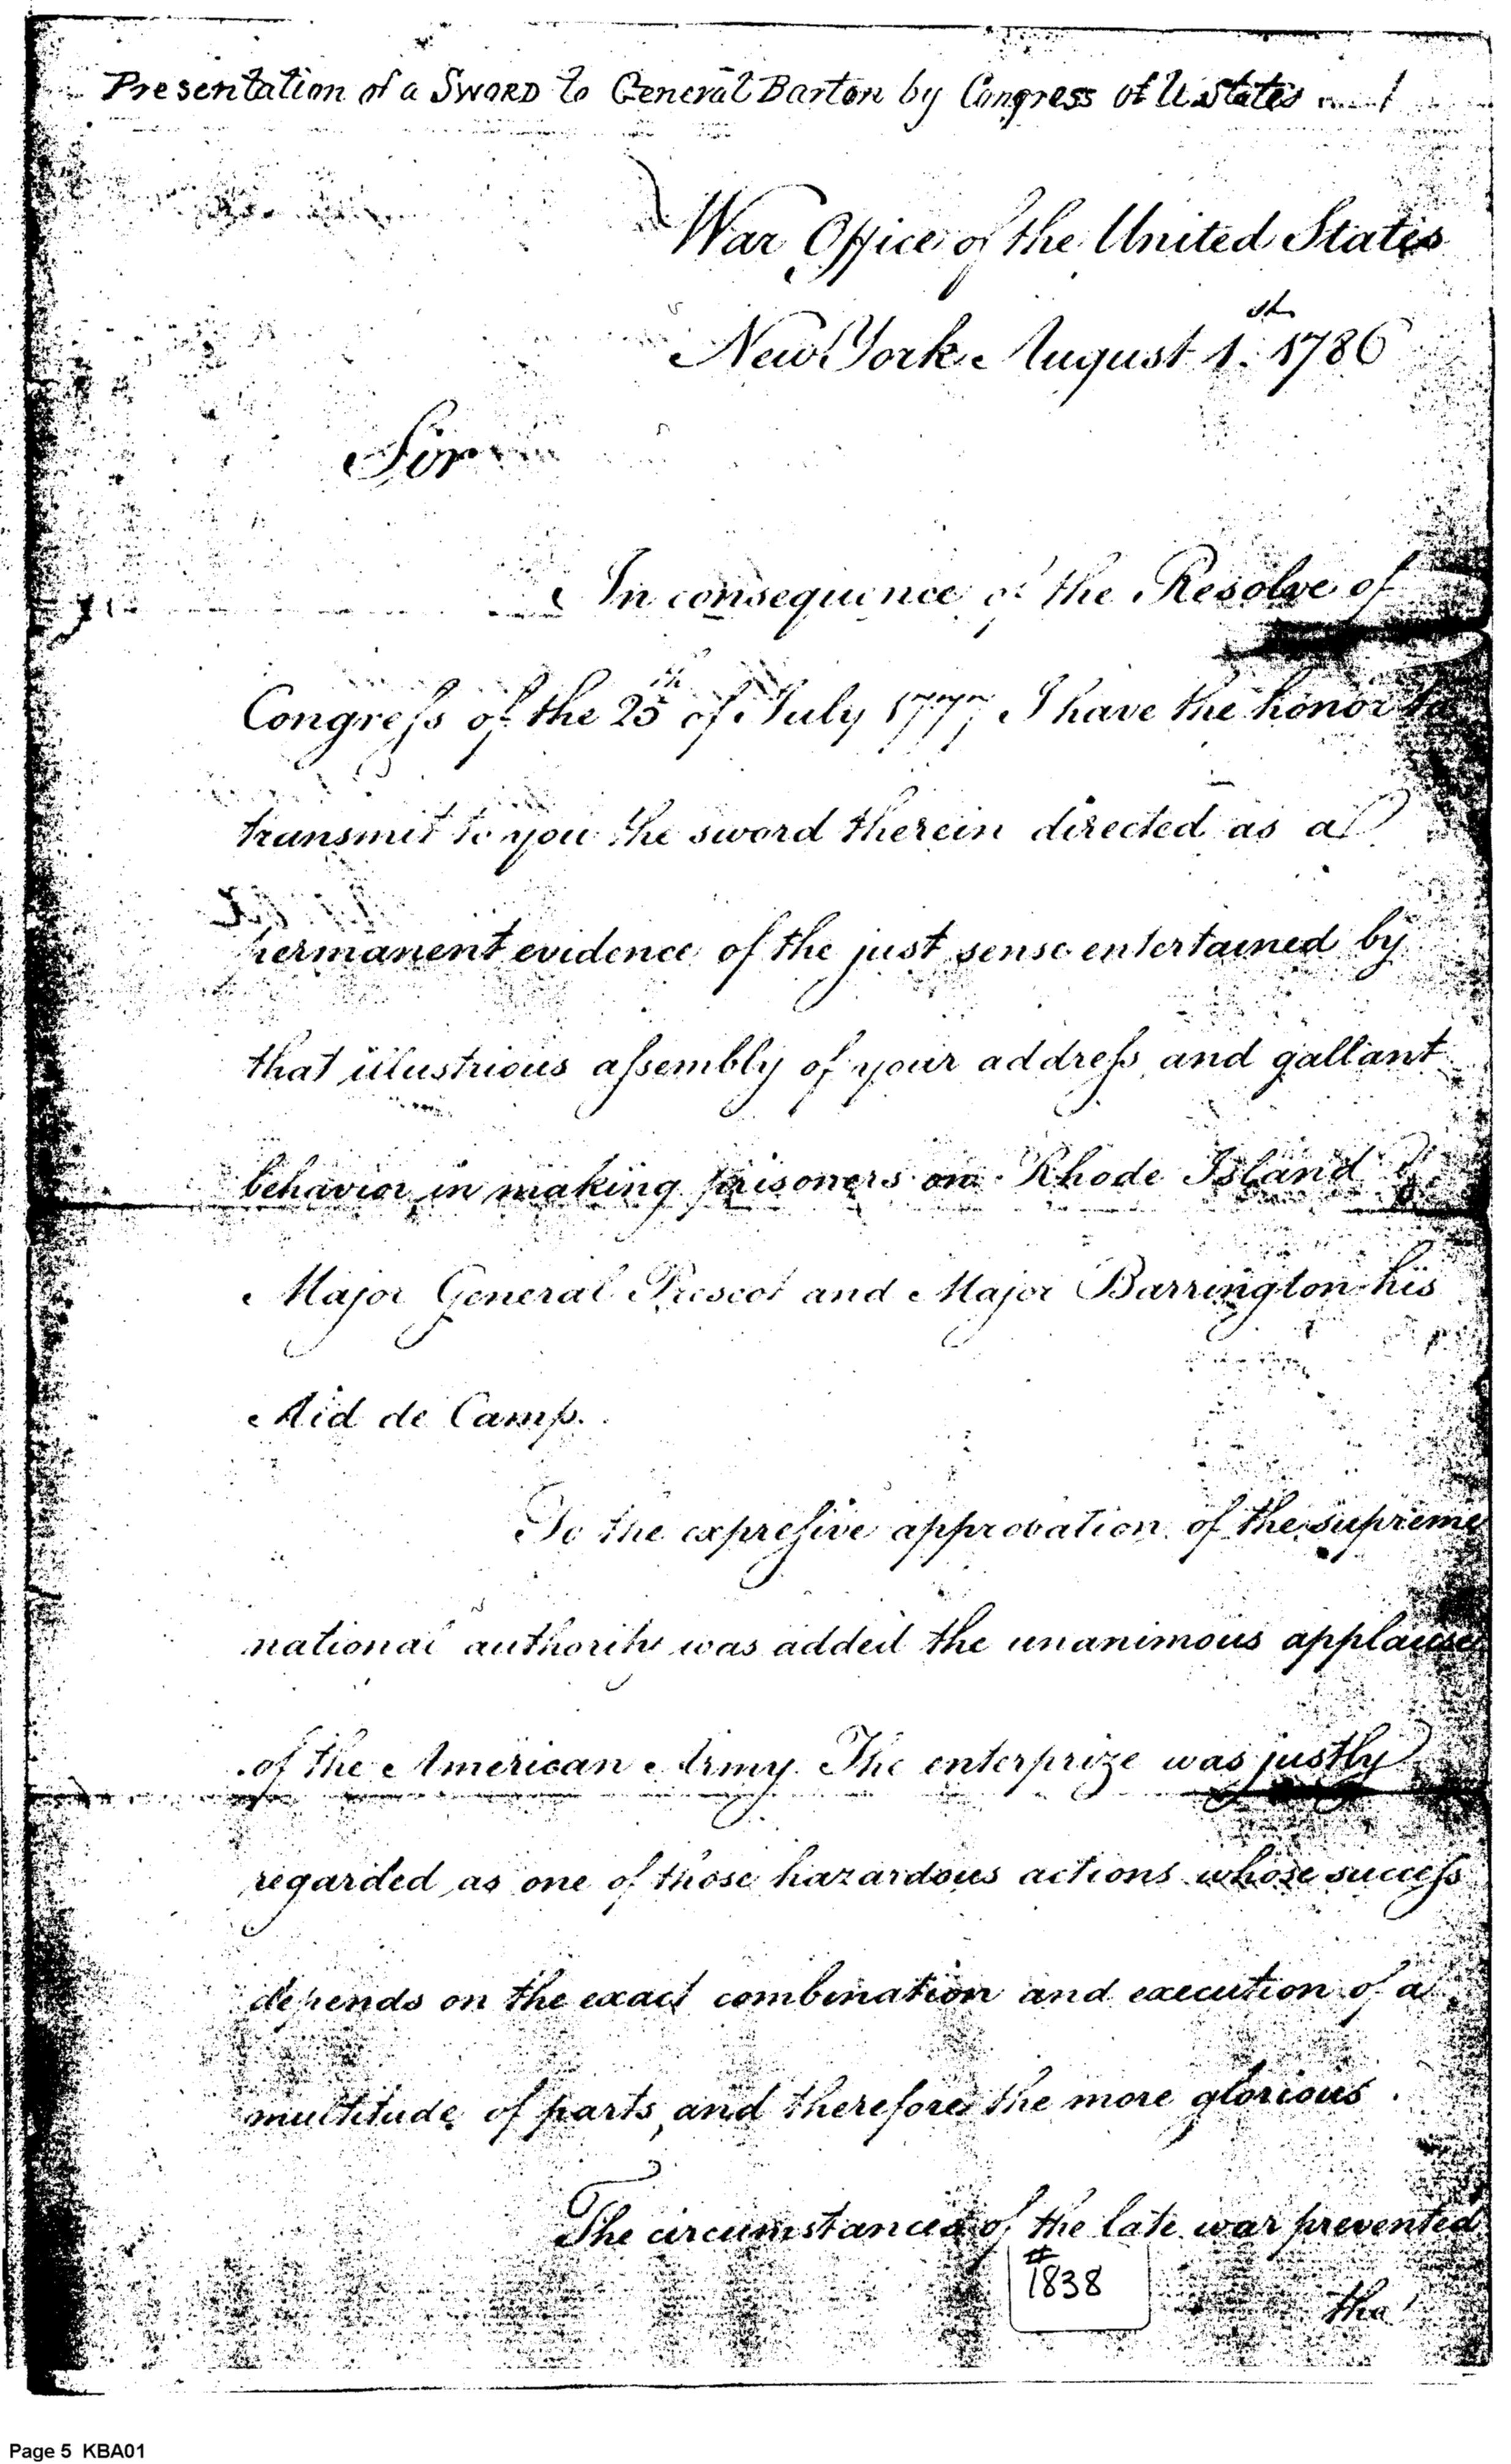 Presentation of a SWORD to General Barton by Congress of U States
War Office of the United States
New York August 1.st 1786
Sir
In consequence of the Resolve of
Congreſs of the 25th of July 1777 I have the honor to
transmit to you the sword therein directed as a
permanent evidence of the just sense entertained by
that illustrious aſsembly of your addreſs, and gallant
behavior in making prisoners on Rhode Island
Major General Prescot and Major Barrington his
Aid de Camp.
To the expreſive approbation of the supreme
national authority was added the unanimous applause
of the American Army. The enterprize was justly
regarded as one of those hazardous actions whose succeſs
depends on the exact combination and execution of a
multitude of parts, and therefore the more glorious.
The circumstances of the late war prevented
#
1838
the
Page 5 KBA01